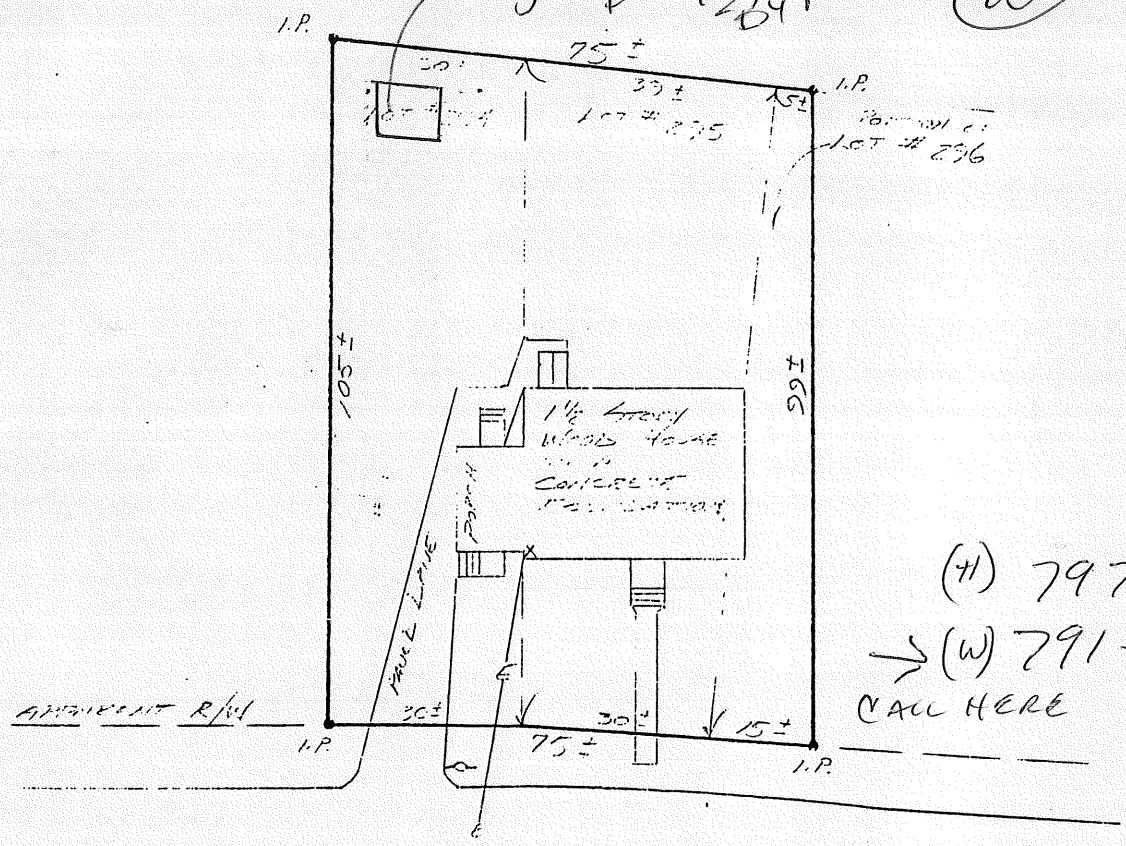 I.P.
75 ±
30 ±
I.P.
39 ±
15 ±
LOT #
LOT # 295
PORTION OF
LOT # 296
105 ±
99 ±
1½ STORY
WOOD HOUSE
CONCRETE
FOUNDATION
PORCH
PAVED DRIVE
(H) 797
→ (W) 791-
CALL HERE
APPARENT R/W
30 ±
E
30 ±
15 ±
I.P.
75 ±
I.P.
E